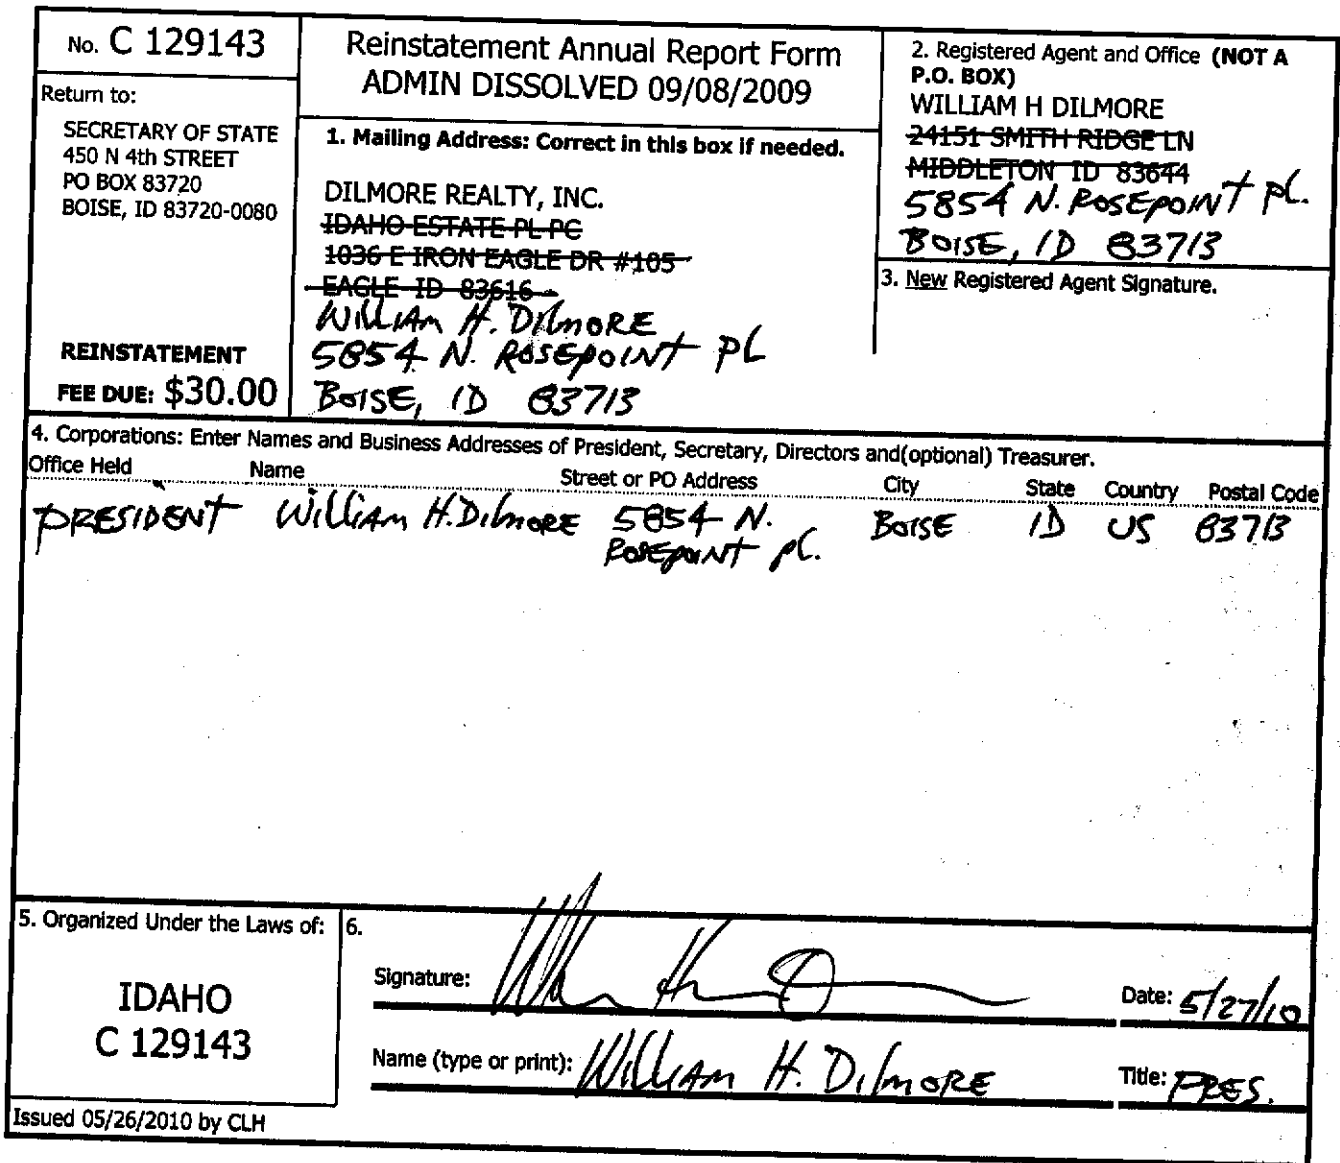 No. C 129143
Return to:
SECRETARY OF STATE
450 N 4th STREET
PO BOX 83720
BOISE, ID 83720-0080
REINSTATEMENT
FEE DUE: $30.00
Reinstatement Annual Report Form
ADMIN DISSOLVED 09/08/2009
1. Mailing Address: Correct in this box if needed.
DILMORE REALTY, INC.
IDAHO ESTATE PL PC
1036 E IRON EAGLE DR #105
EAGLE ID 83616
William H. Dilmore
5854 N. Rosepoint Pl
Boise, ID 83713
2. Registered Agent and Office (NOT A
P.O. BOX)
WILLIAM H DILMORE
24151 SMITH RIDGE LN
MIDDLETON ID 83644
5854 N. Rosepoint Pl.
Boise, ID 83713
3. New Registered Agent Signature.
4. Corporations: Enter Names and Business Addresses of President, Secretary, Directors and(optional) Treasurer.
Office Held Name Street or PO Address City State Country Postal Code
President William H. Dilmore 5854 N. Boise ID US 83713
Rosepoint Pl.
5. Organized Under the Laws of:
IDAHO
C 129143
Issued 05/26/2010 by CLH
6.
Signature: Date: 5/27/10
Name (type or print): William H. Dilmore Title: Pres.